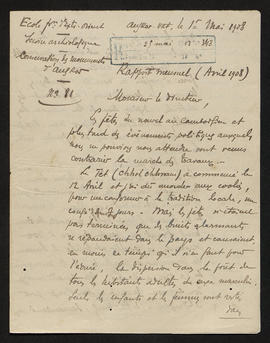 Ecole fse d'Extr. Orient
Angkor vat, le 1er Mai 1908
Service archéologique
Conservation des monuments
d'Angkor
No 81
25 mai 343
Rapport mensuel (Avril 1908)
Monsieur le Directeur,
Les fêtes du nouvel an cambodgien et
plus tard des événements politiques auxquels
nous ne pouvions nous attendre sont venus
contrarier la marche des travaux.
Le Têt (chhol chhnam) a commencé le
12 Avril et j'ai dû accorder aux coolies,
pour me conformer à la tradition locale, un
congé de 7 jours. Mais les fêtes n'étaient
pas terminées, que les bruits alarmants
se répandaient dans le pays et causaient,
en moins de temps qu'il n'en faut pour
l'écrire, la dispersion dans la forêt de
tous les habitants adultes, du sexe masculin.
Seuls les enfants et les femmes sont restés